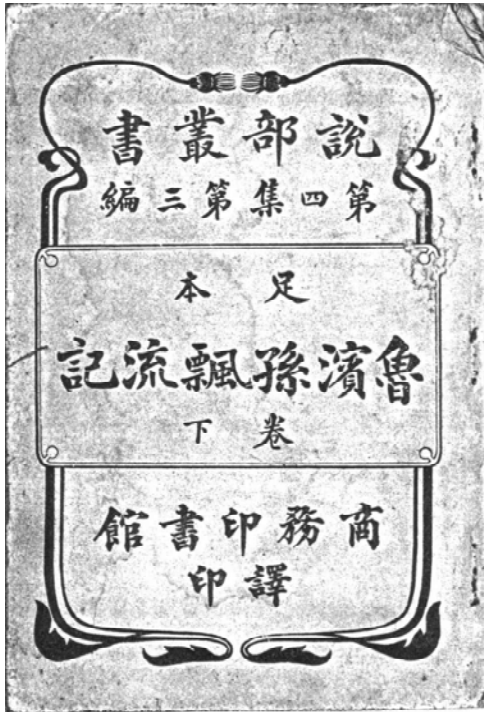 說部叢書
第四集第三編
足本
魯濱孫飄流記
卷下
商務印書館
譯印